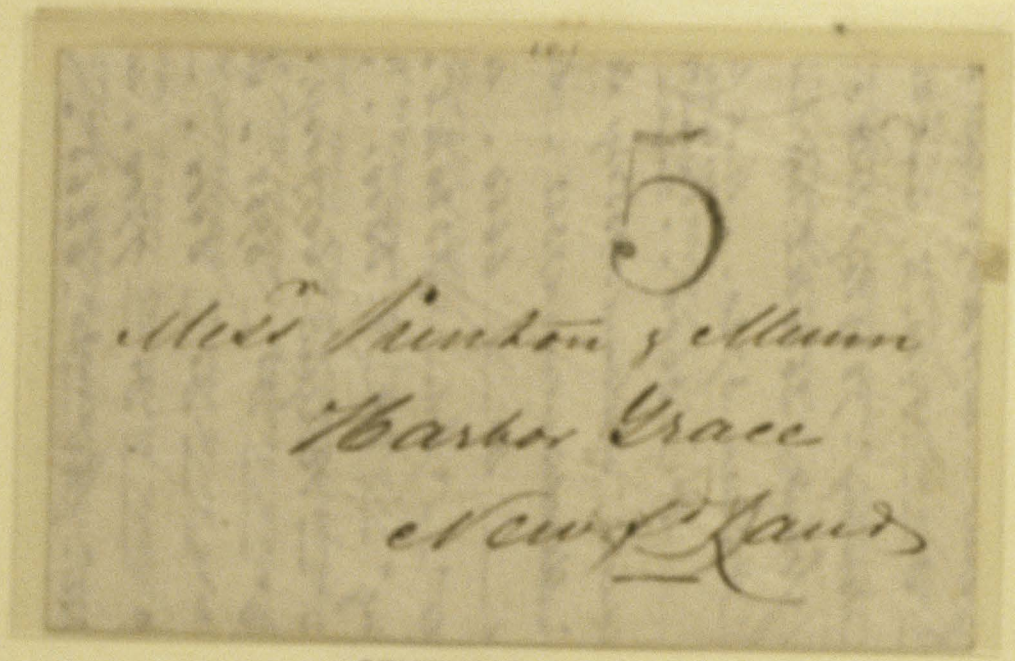 5
Messrs Punton & Munn
Harbor Grace
Newfd Land